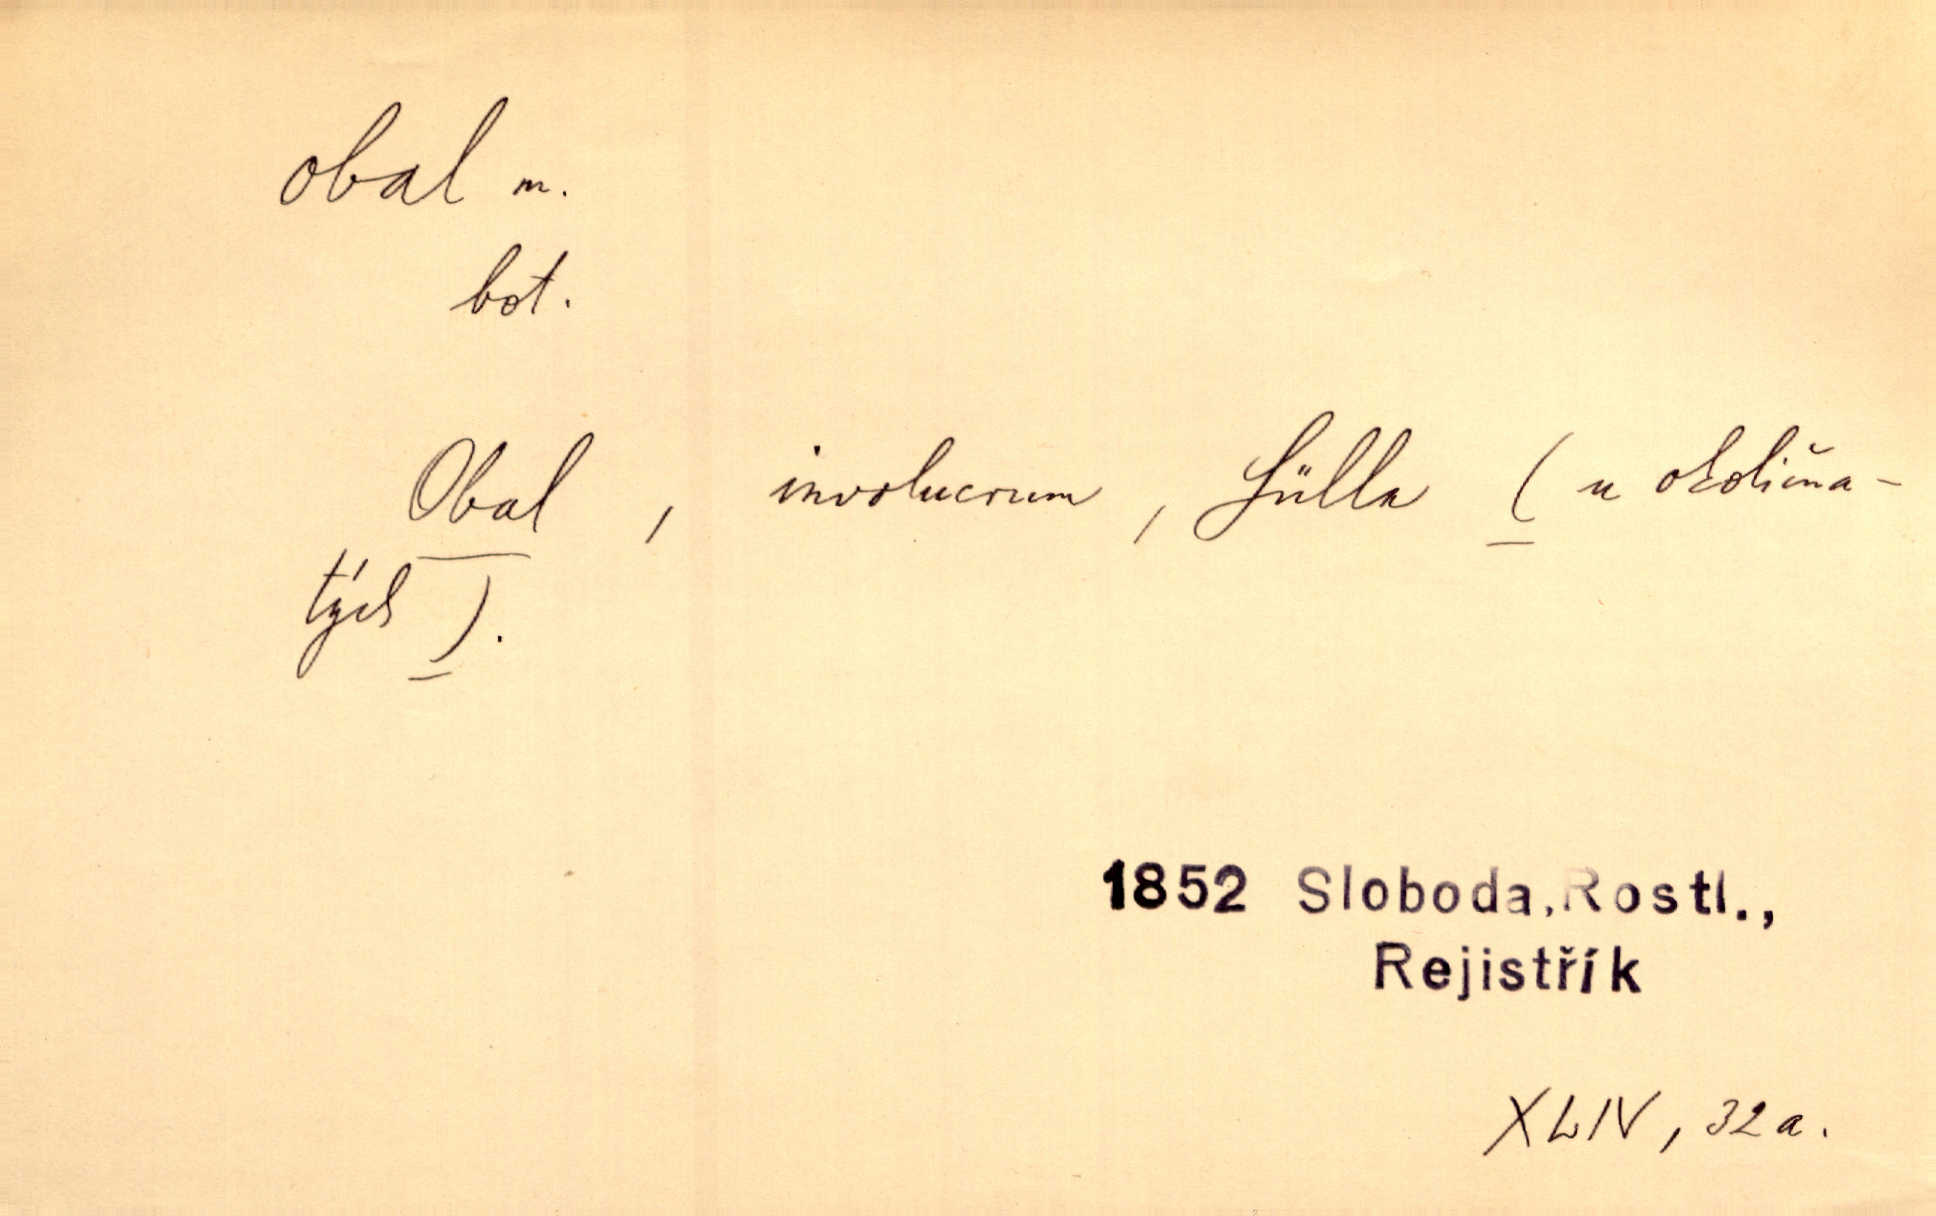 obal m.
bot.
Obal, involucrum, Hülle (u okolična-
tých).
1852 Sloboda, Rostl.,
Rejistřík
XLIV, 32a.